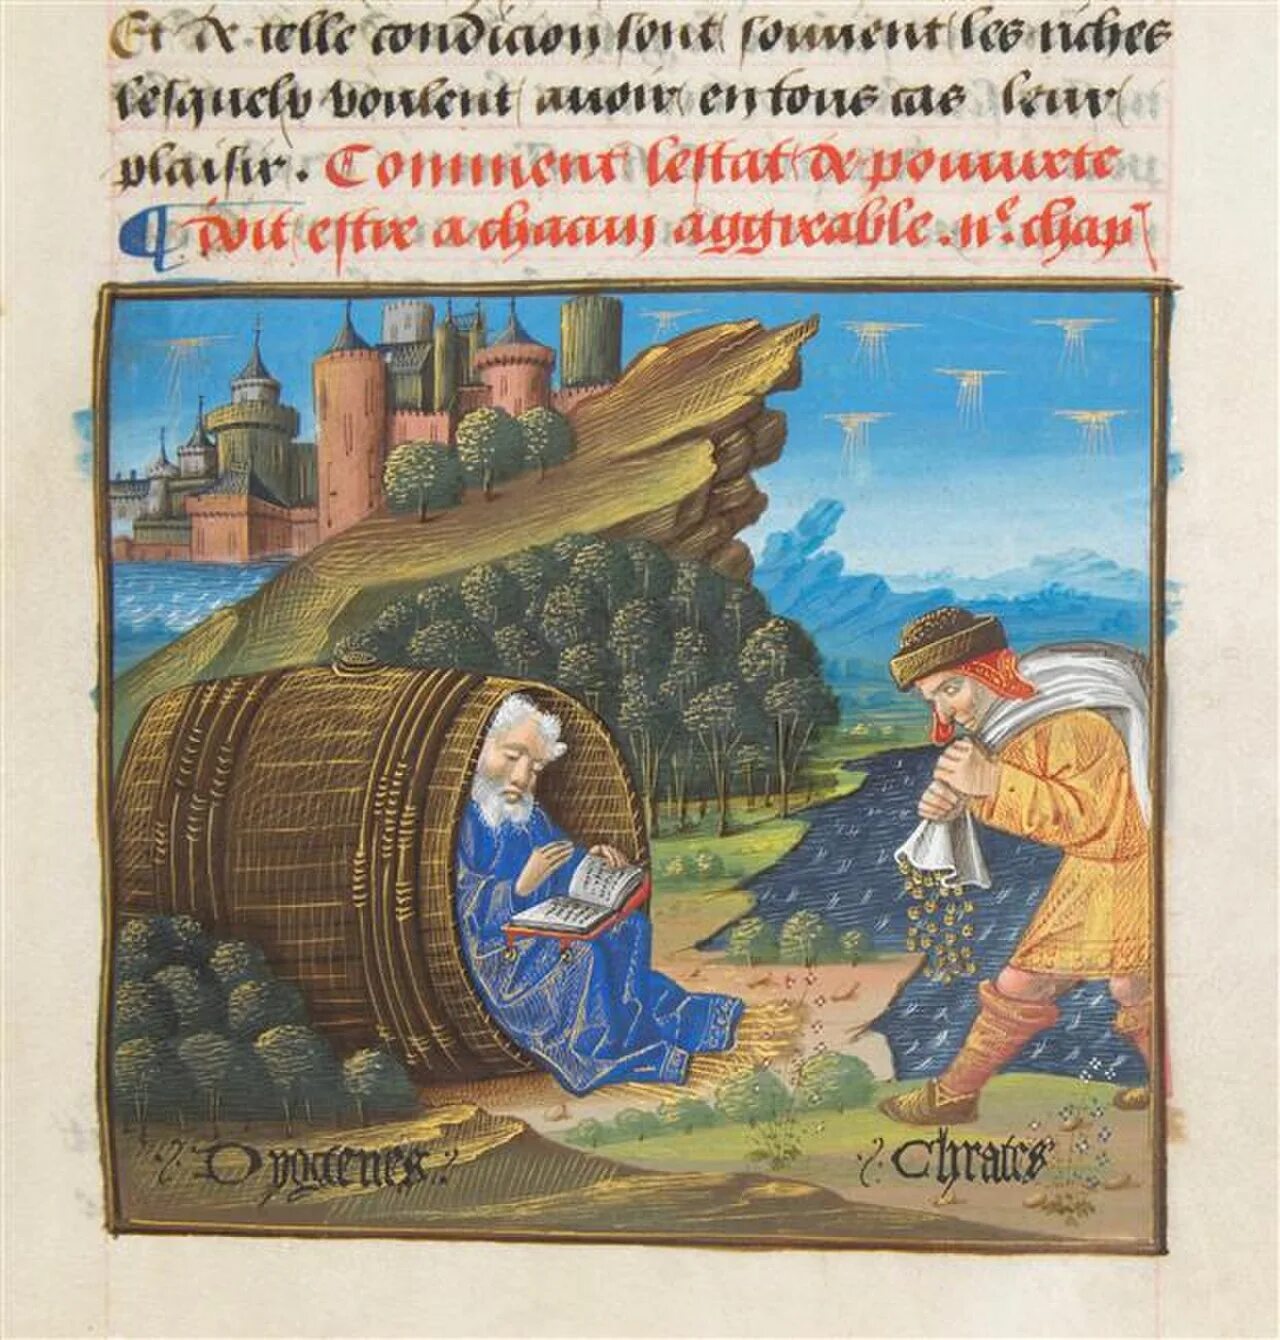 Et de telle condicion sont souuent les riches
lesquelz voulent auoir en tous cas leur
plaisir. Comment lestat de pouurete
doit estre a chacun aggreable. iie. chap
Dyogenes
Chrates